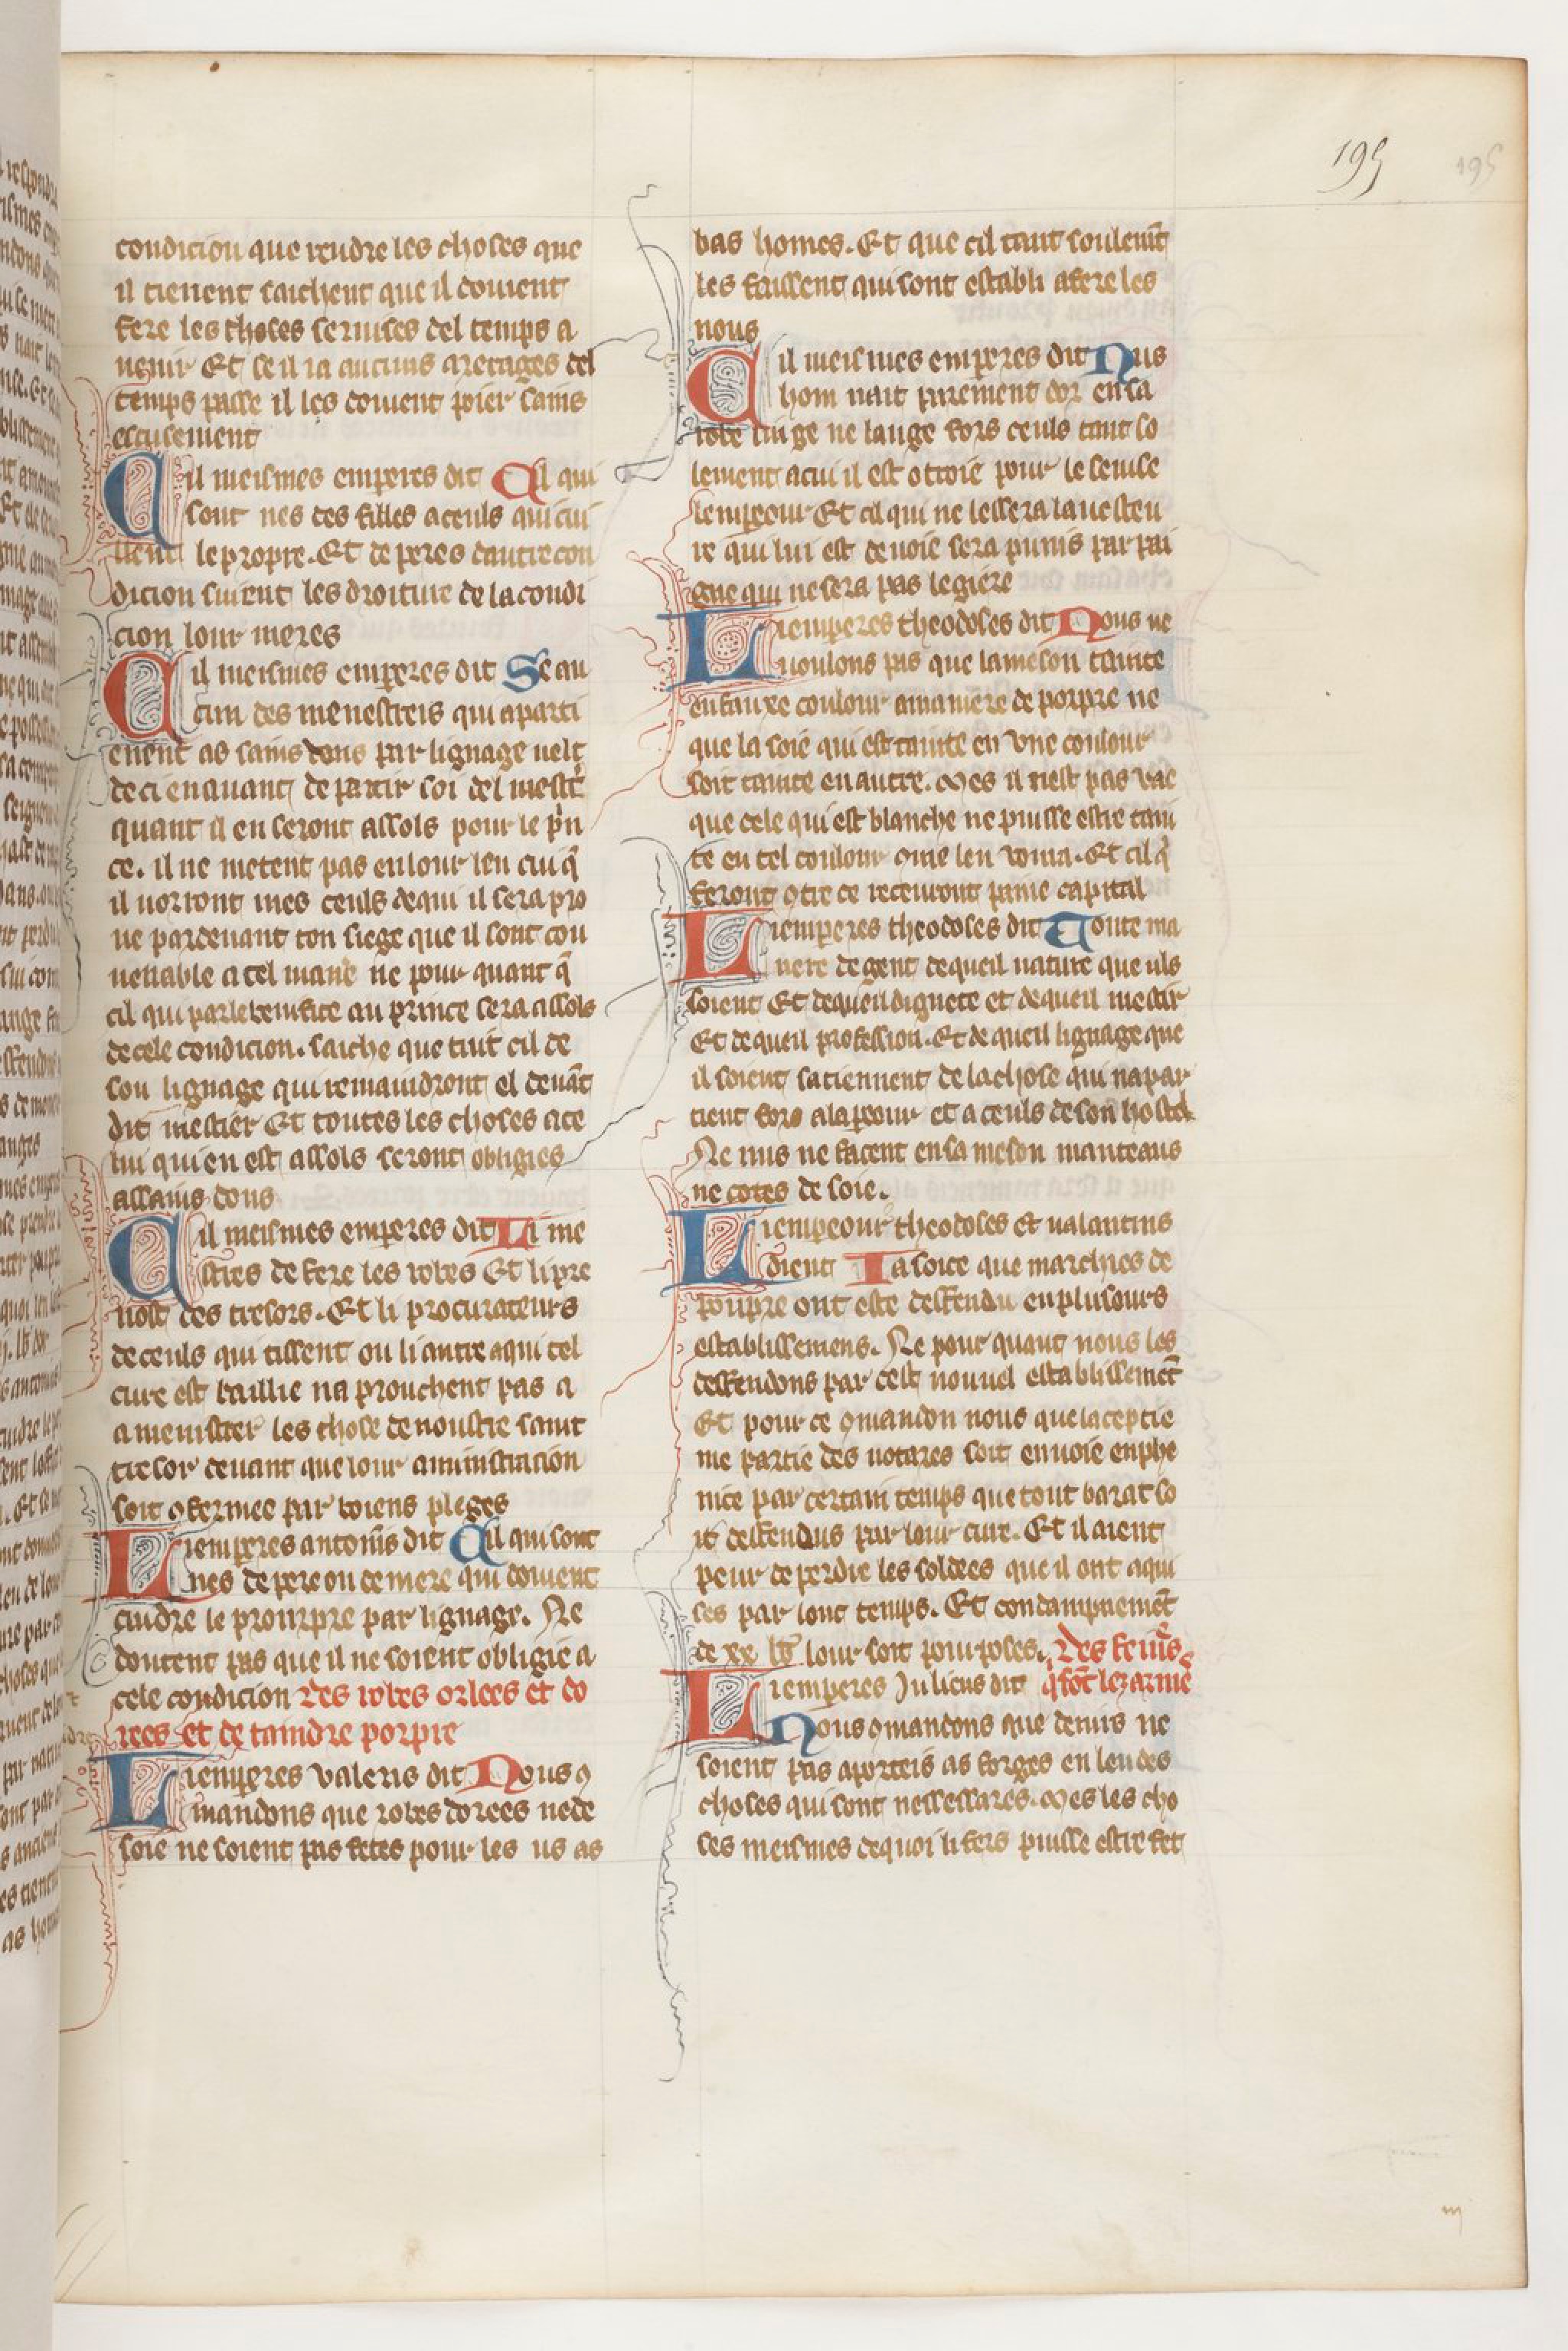 195 195
condicion que rendre les choses que
il tienent saichent que il couient
fere les choses seruises del temps a
uenir Et se il ia aucuns aretages del
temps passe il les couient poier sains
escusement
Cil meismes emperes dit Cil qui
sont nes des filles a ceuls qui cui
llent le propre. Et de peres dautre con
dicion suient les droiture de la condi
cion lour meres
Cil meismes emperes dit Se au
cun des menestreis qui aparti
enent as sains dons par lignage uelt
de ci en auant departir soi del mestr
quant il en seront assols pour le prin
ce. il ne metent pas en lour leu cui q̄
il uorront mes ceuls de qui il sera pro
ue par deuant ton siege que il sont con
uenable a cel mane ne pour quant q̄
cil qui par le benifice au prince sera assols
de cele condicion. saiche que tuit cil de
son lignage qui remaindront el deuāt
dit mestier Et toutes les choses a ce
lui qui en est assols seront obligies
as sains dons
Cil meismes emperes dit Li me
stres de fere les robes Et li pre
uost des tresors. Et li procurateurs
de ceuls qui tissent ou li autre a qui tel
cure est baillie na prouchent pas a
amenistrer les chose de noustre saint
tresor deuant que lour aministracion
soit ꝯfermee par boiens pleges
Li emperes antonīs dit Cil qui sont
nes de pere ou de mere qui doiuent
cuidre le prourpre par lignage. Ne
doutent pas que il ne soient obligie a
cele condicion Des robes orlees et do
rees et de taindre porpre
Li emperes valeris dit Nous ꝯ
mandons que robes dorees ne de
soie ne soient pas fetes pour les us as
bas homes. Et que cil tant soulemt̄
les faissent qui sont establi a fere les
nous
Cil meismes emperes dit Nus
hom nait parement dor en sa
robe linge ne lange fors ceuls tant so
lement a cui il est otroie pour le seruise
lempeour Et cil qui ne lessera la uesteu
re qui lui est deuoie sera punis par pai
gne qui ne sera pas legiere
Li emperes theodoses dit Nous ne
uoulons pas que la meson tainte
en fauxe coulour a maniere de porpre ne
que la soie qui est tainte en vne coulour
soit tainte en autre. Mes il nest pas vae
que cele qui est blanche ne puisse estre tain
te en tel coulour ꝯme len voura. Et cil q̄
feront ꝯtre ce receuront paine capital
Li emperes theodoses dit Toute ma
niere de gent de queil nature que uls
soient Et de queil dignete et de queil mestir
Et de queil profession. Et de queil lignage que
il soient satiennent de la chose qui napar
tient fors a lapeour et a ceuls de son hostel
Ne nus ne facent en sa meson manteaus
ne cotes de soie.
Li empeour theodoses et ualantins
dient La soice que marchies de
poupre ont este deffendu en plusours
establissemens. Ne pour quant nous les
deffendons par cest nouuel establissemēt
Et pour ce ꝯmandon nous que la ceptie
me partie des notares soit enuoie en phe
nice par certain temps que tout barat so
it deffendus par lour cure. Et il aient
peur de perdre les soldees que il ont aqui
ses par lonc temps. Et condampnemēt
de xx lb̄ lour soit pourposes. Des feures
Li emperes Juliens dit q̄ fōt lez arme
Nous ꝯmandons que denirs ne
soient pas aporteis as forges en leu des
choses qui sont nessessares. Mes les cho
ses meismes de quoi li fers puisse estre fet